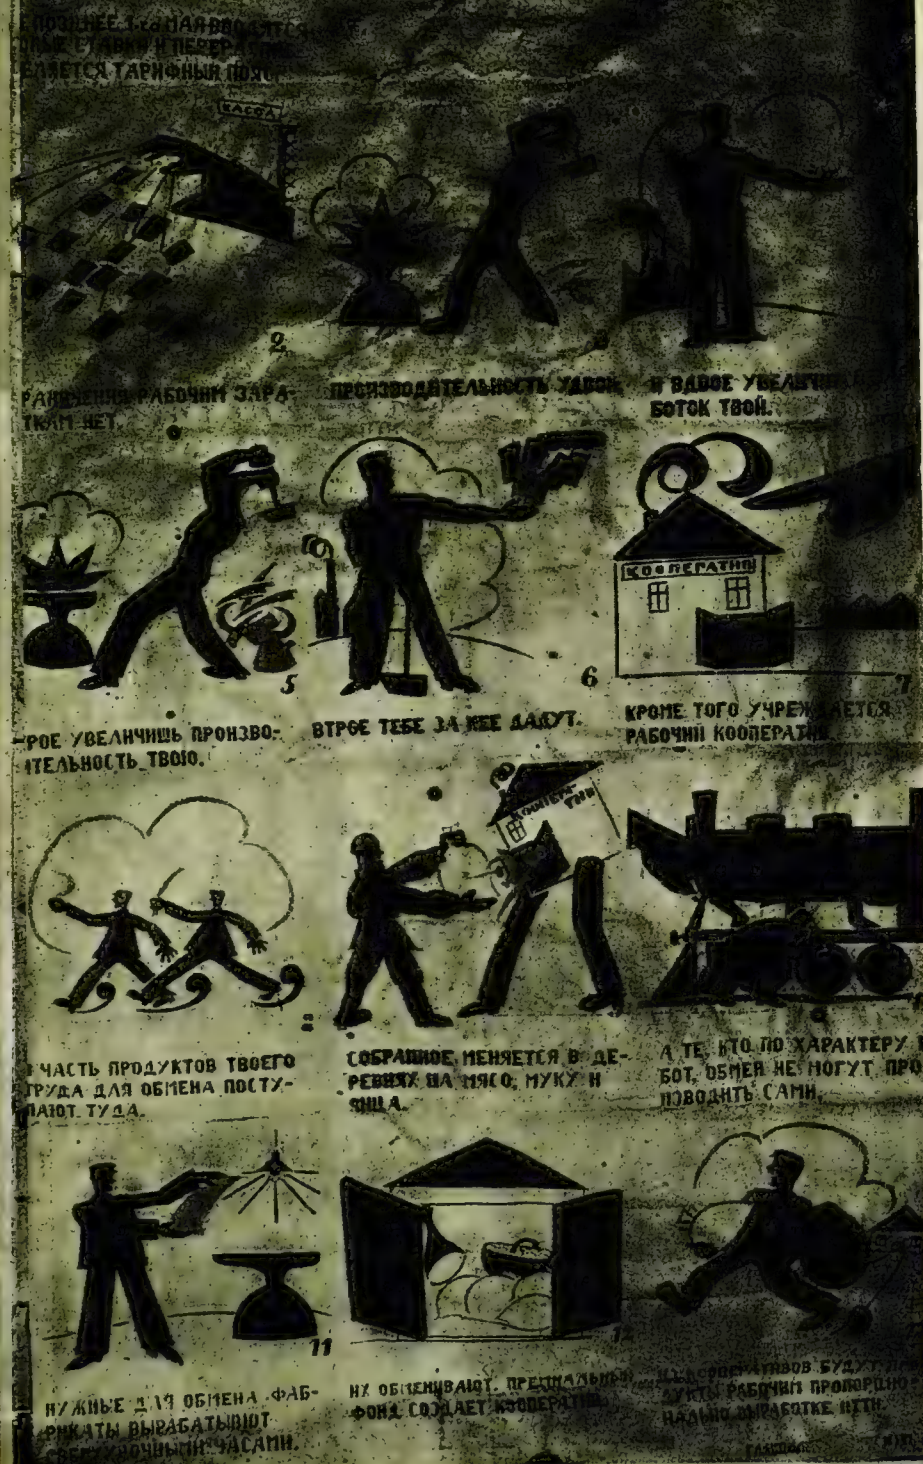 ПОЗДНЕЕ 1-го МАЯ ВВОДЯТСЯ
СТАВКИ И
ТАРИФНЫЙ
КАССА
2
РАНИЧЕНИЯ РАБОЧИМ ЗАРА-
ТКАМ НЕТ.
ПРОИЗВОДИТЕЛЬНОСТЬ УДВОЙ,
И ВДВОЕ
БОТОК ТВОЙ.
5
РОЕ УВЕЛИЧИШЬ ПРОИЗВО-
ИТЕЛЬНОСТЬ ТВОЮ.
6
ВТРОЕ ТЕБЕ ЗА НЕЕ ДАДУТ.
КООПЕРАТИВ
7
КРОМЕ ТОГО УЧРЕЖДАЕТСЯ
РАБОЧИЙ КООПЕРАТИВ
ЧАСТЬ ПРОДУКТОВ ТВОЕГО
ТРУДА ДЛЯ ОБМЕНА ПОСТУ-
ПАЮТ ТУДА.
КООПЕРА-
ТИВ
СОБРАННОЕ МЕНЯЕТСЯ В ДЕ-
РЕВНЯХ НА МЯСО, МУКУ И
ЯЙЦА.
А ТЕ, КТО ПО ХАРАКТЕРУ
БОТ, ОБМЕН НЕ МОГУТ ПРО
ИЗВОДИТЬ САМИ,
11
НУЖНЫЕ ДЛЯ ОБМЕНА ФАБ-
РИКАТЫ ВЫРАБАТЫВАЮТ
СВЕРХУРОЧНЫМИ ЧАСАМИ.
ИХ ОБМЕНИВАЮТ.
ФОНД СОЗДАЕТ КООПЕРАТИВ.
БУДУТ
УКТЫ РАБОЧИМ ПРОПОРЦИО-
НАЛЬНО ВЫРАБОТКЕ ИТТИ.